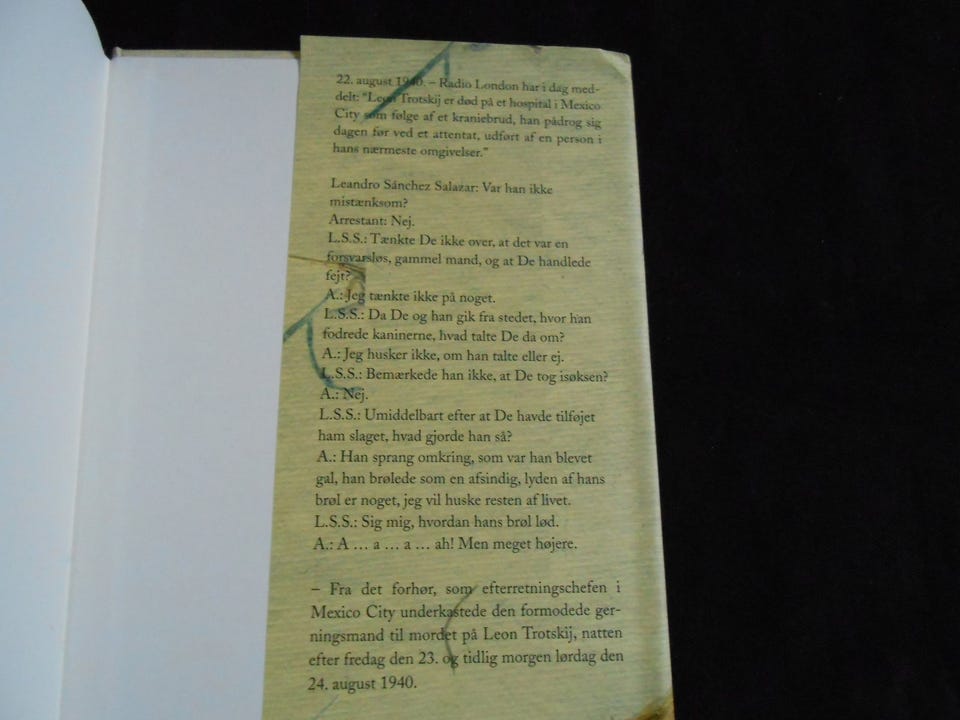 22. august 1940. – Radio London har i dag med-
delt: "Leon Trotskij er død på et hospital i Mexico
City som følge af et kraniebrud, han pådrog sig
dagen før ved et attentat, udført af en person i
hans nærmeste omgivelser."
Leandro Sánchez Salazar: Var han ikke
mistænksom?
Arrestant: Nej.
L.S.S.: Tænkte De ikke over, at det var en
forsvarsløs, gammel mand, og at De handlede
fejt?
A.: Jeg tænkte ikke på noget.
L.S.S.: Da De og han gik fra stedet, hvor han
fodrede kaninerne, hvad talte De da om?
A.: Jeg husker ikke, om han talte eller ej.
L.S.S.: Bemærkede han ikke, at De tog isøksen?
A.: Nej.
L.S.S.: Umiddelbart efter at De havde tilføjet
ham slaget, hvad gjorde han så?
A.: Han sprang omkring, som var han blevet
gal, han brølede som en afsindig, lyden af hans
brøl er noget, jeg vil huske resten af livet.
L.S.S.: Sig mig, hvordan hans brøl lød.
A.: A … a … a … ah! Men meget højere.
– Fra det forhør, som efterretningschefen i
Mexico City underkastede den formodede ger-
ningsmand til mordet på Leon Trotskij, natten
efter fredag den 23. og tidlig morgen lørdag den
24. august 1940.